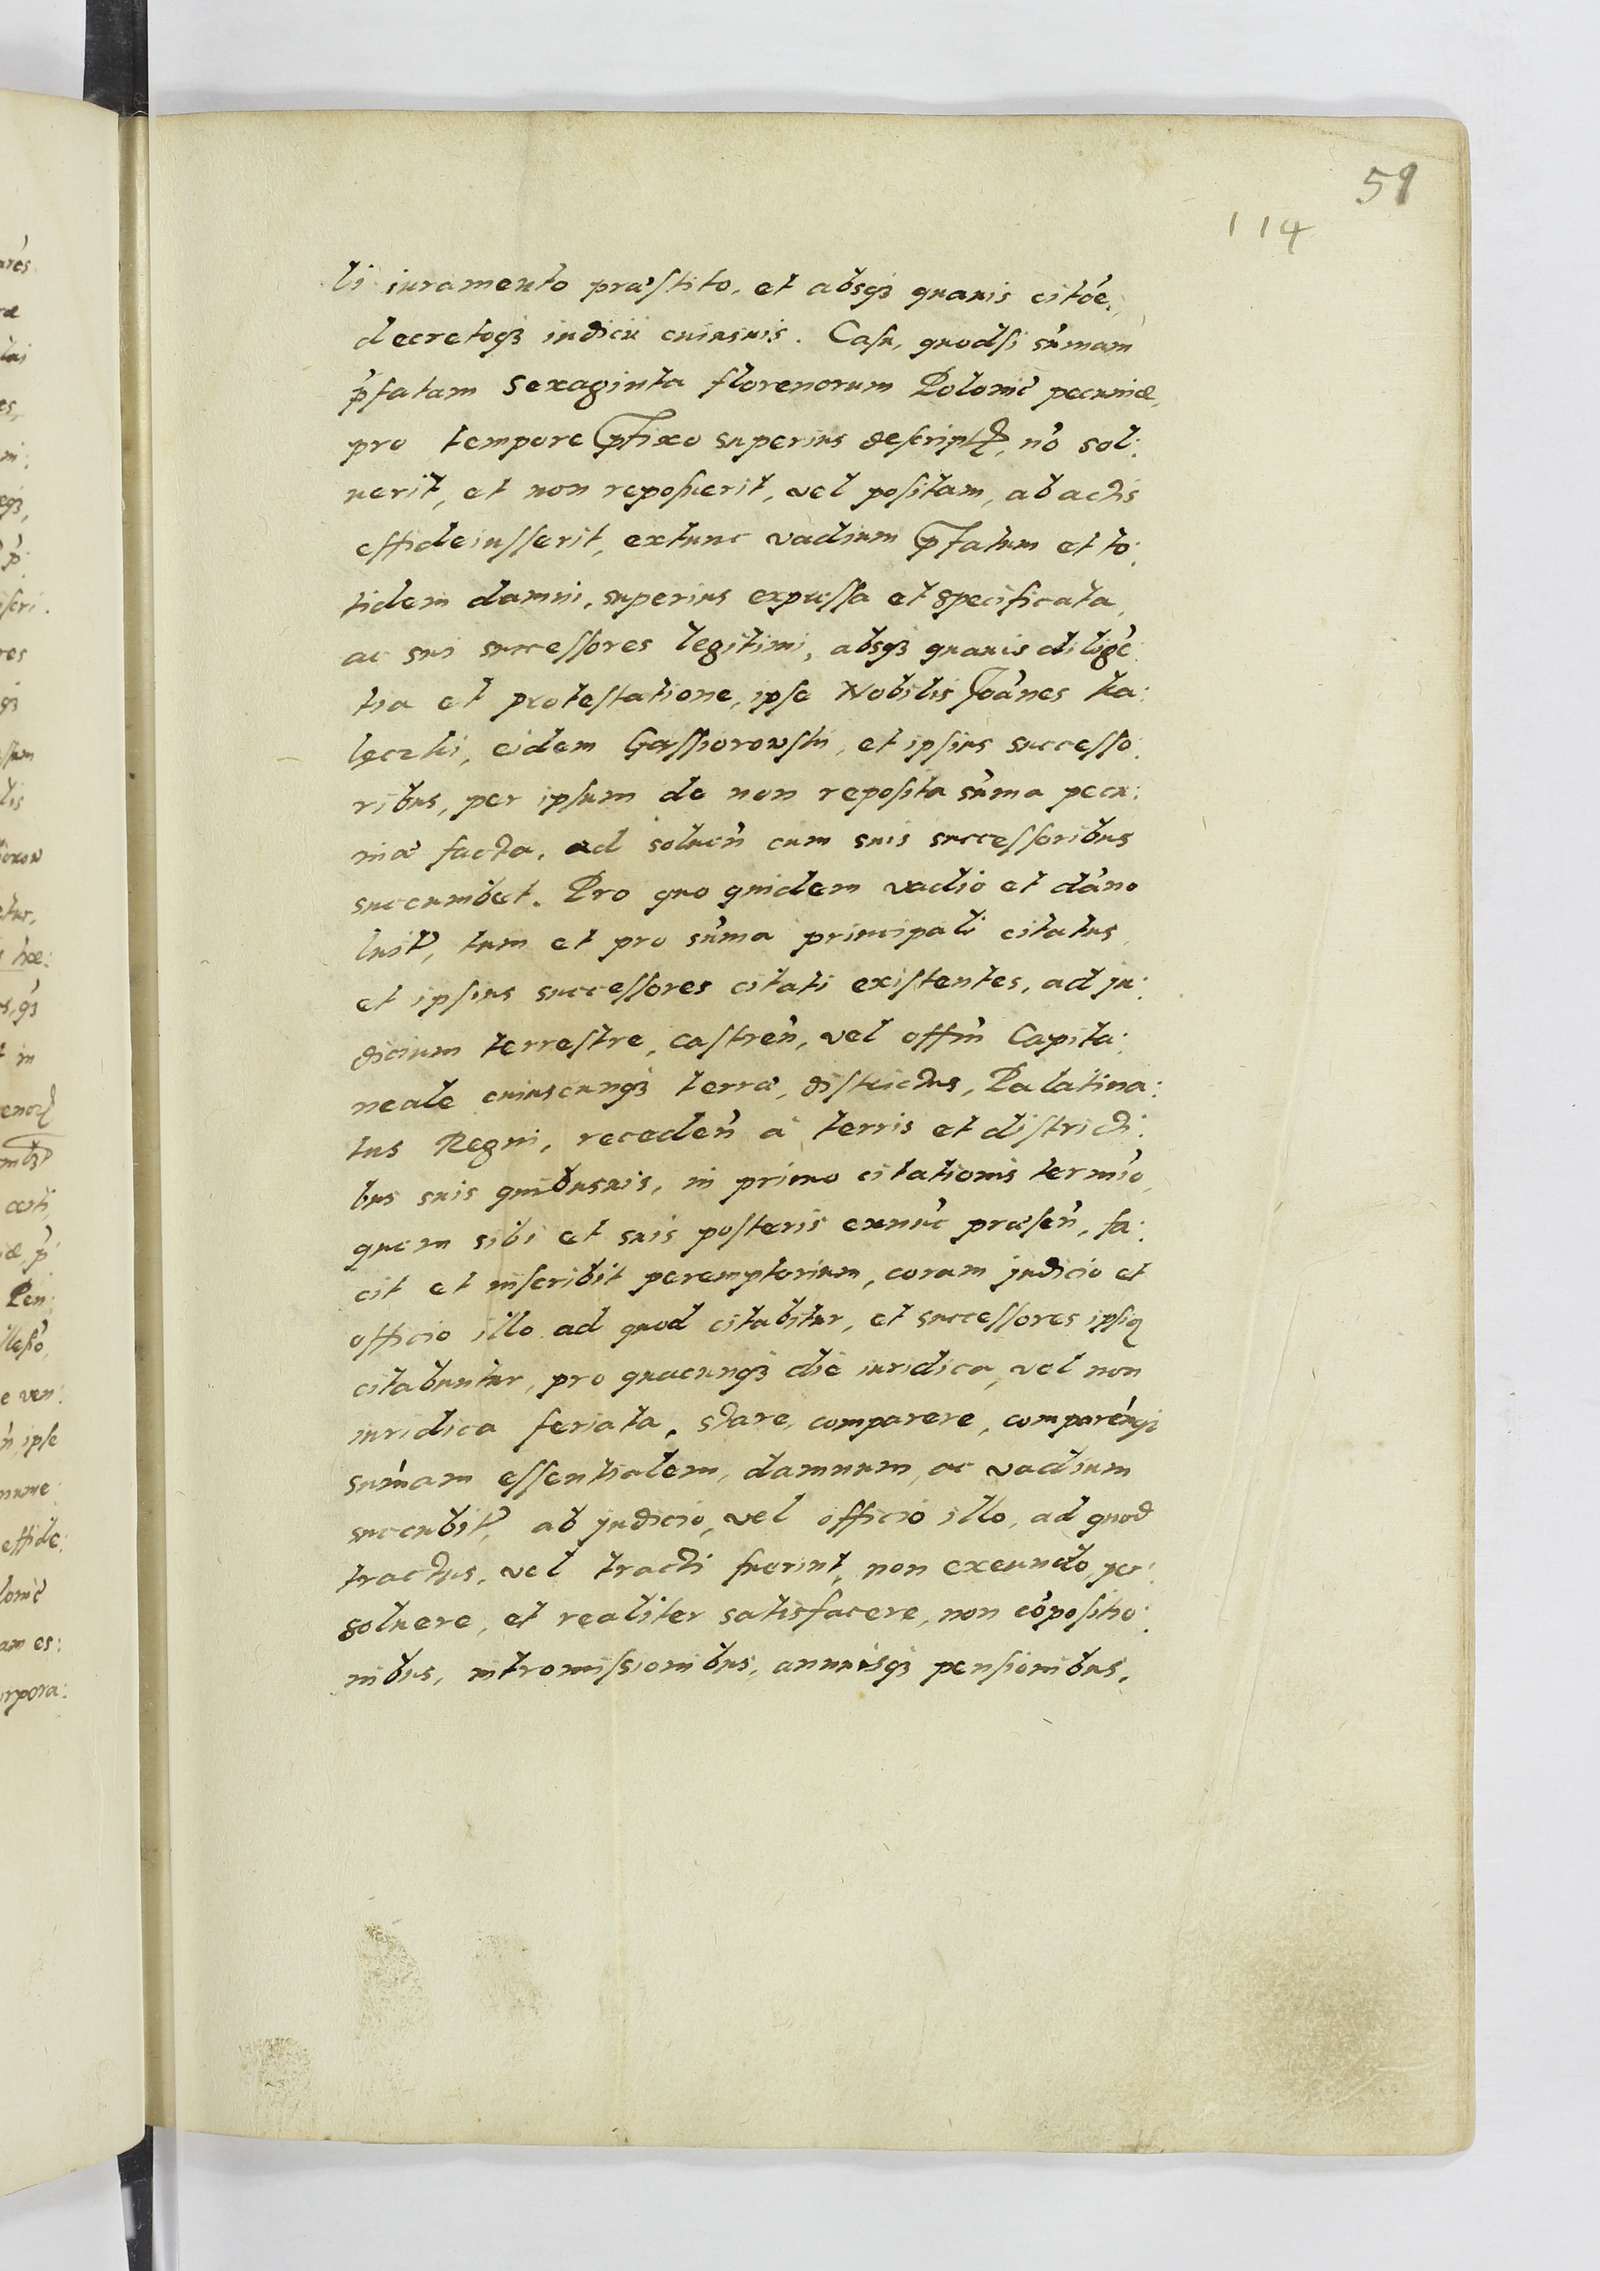 59
114
li iuramento præstito, et absqȝ quauis citõe,
decretoqȝ iudicii cuiusuis. Casu, quodsi sum̃am
p̃fatam sexaginta florenorum Polonic̃ pecuniæ,
pro tempore p̃fixo superius descriptꝭ, nõ sol:
uerit, et non reposuerit, vel positam, ab actis
effideiusserit, extunc vadium p̃fatum et to:
tidem damni, superius expressa et specificata,
ac sui successores legitimi, absqȝ quauis diligẽ:
tia et protestatione, ipse Nobilis Joãnes ka:
lęczki, eidem Gassiorowski, et ipsius successo:
ribus, per ipsum de non reposita sum̃a pecu:
niæ facta, ad soluen̄ cum suis successoribus
succumbet. Pro quo quidem vadio et dãno
luit̃, tum et pro sum̃a principali citatus,
et ipsius successores citati existentes, ad ju:
dicium terrestre, castren̄, vel offm̄ Capita:
neale cuiuscunqȝ terræ, districtus, Palatina:
tus Regni, receden̄ à terris et districti:
bus suis quibusuis, in primo citationis termĩo,
quem sibi et suis posteris exnũc præsen̄, fa:
cit et inscribit peremptorium, coram judicio et
officio illo ad quod citabitur, et successores ipsiꝰ
citabuntur, pro quacunqȝ die iuridica, vel non
iuridica feriata, stare, comparere, comparẽnqȝ
sum̃am essentialem, damnum, ac vadium
succubit̃, ab judicio, vel officio illo, ad quod
tractus, vel tracti fuerint, non exeundo, per:
soluere, et realiter satisfacere, non cõpositio:
nibus, intromissionibus, annuisqȝ pensionibus,